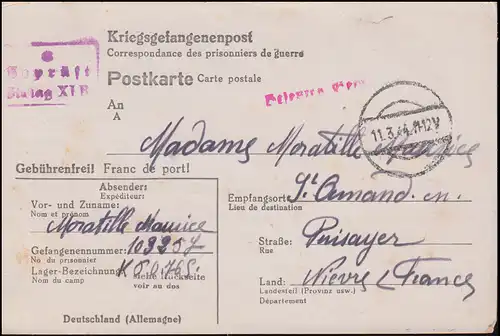 Kriegsgefangenenpost
Correspondance des prisonniers de guerre
6
Geprüft
Stalag XI B
Postkarte Carte postale
An
A
11.3.44.11-12V
Madame Moratille Maurice
Gebührenfrei! Franc de port!
Absenders
Expéditeurs
Vor- und Zuname:
Nom et prénom
Moratille Maurice
Gefangenennummer:
No du prisonnier
Lager-Bezeichnung
Nom du camp
siehe Rückseite
voir au dos
Deutschland (Allemagne)
Empfangsort:
Lieu de destination
St Amand en
Straße:
Rue
Puisaye
Land:
Landesteil (Provinz usw.)
Département
Nièvre (France)